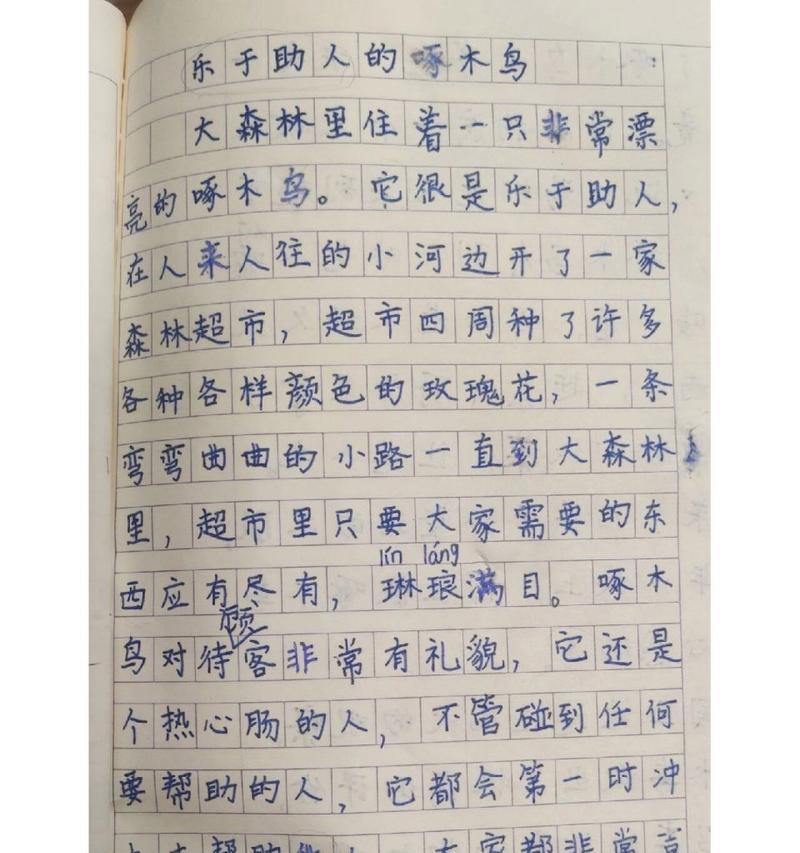 乐于助人的啄木鸟
大森林里住着一只非常漂
亮的啄木鸟。它很是乐于助人，
在人来人往的小河边开了一家
森林超市，超市四周种了许多
各种各样颜色的玫瑰花，一条
弯弯曲曲的小路一直到大森林
里，超市里只要大家需要的东
lín láng
西应有尽有，琳琅满目。啄木
顾
鸟对待客非常有礼貌，它还是
个热心肠的人，不管碰到任何
要帮助的人，它都会第一时冲
帮助 大家都非常喜